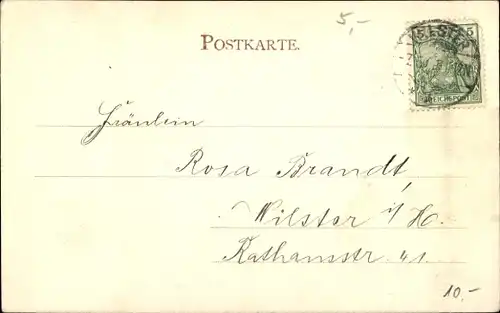 5,-
POSTKARTE.
WILSTER
5
REICHSPOST
Fräulein
Rosa Brandt,
Wilster i/H.
Rathausstr. 41.
10.-